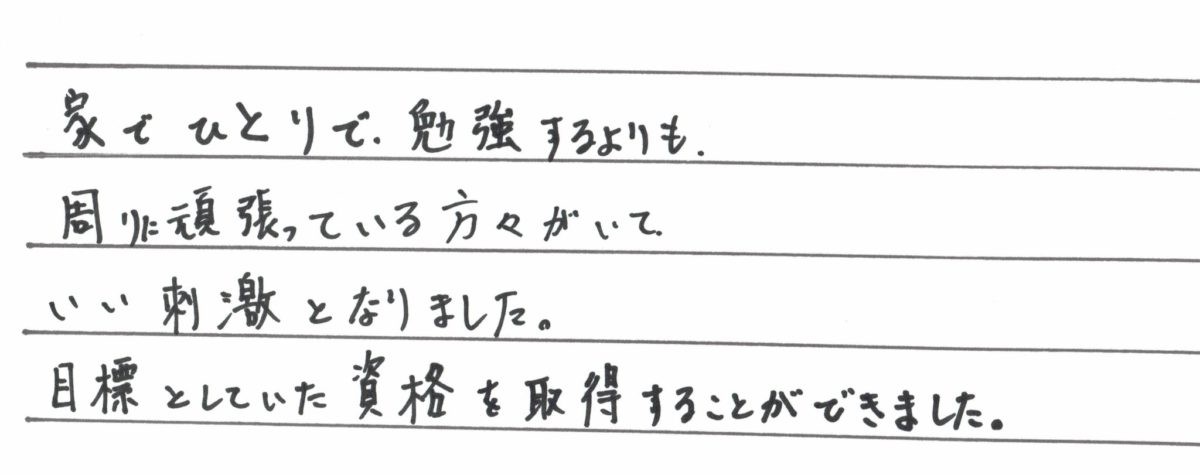 家でひとりで、勉強するよりも、
周りに頑張っている方々がいて
いい刺激となりました。
目標としていた資格を取得することができました。